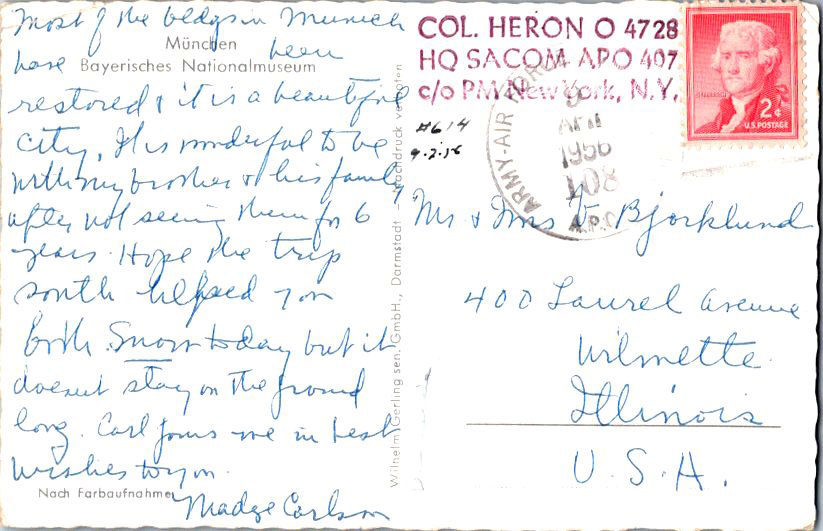 Most of the bldgs in Munich
München
have been
Bayerisches Nationalmuseum
restored & it is a beautiful
city. It is wonderful to be
with my brother & his family
after not seeing them for 6
years. Hope the trip
south helped you
both. Snow today but it
doesnt stay on the ground
long. Carl joins me in best
wishes to you.
Nach Farbaufnahme
Madge Carlson
Wilhelm Gerling sen. GmbH., Darmstadt Nachdruck verboten
COL. HERON O 4728
HQ SACOM APO 407
c/o PM New York, N.Y.
JEFFERSON
2¢
U.S. POSTAGE
ARMY-AIR FORCE
APR
1956
108
A.P.O.
#614
4-2-56
Mr & Mrs V. Bjorklund
400 Laurel Avenue
Wilmette
Illinois
U.S.A.